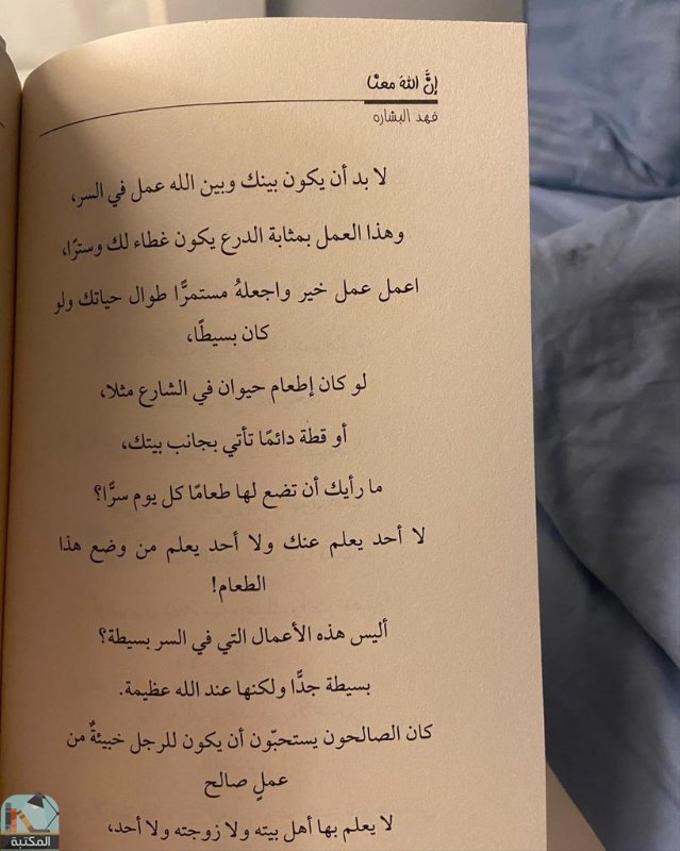 إنَّ اللهَ معنا
فهد البشاره
لا بد أن يكون بينك وبين الله عمل في السر،
وهذا العمل بمثابة الدرع يكون غطاء لك وسترًا،
اعمل عمل خير واجعلهُ مستمرًّا طوال حياتك ولو
كان بسيطًا،
لو كان إطعام حيوان في الشارع مثلا،
أو قطة دائمًا تأتي بجانب بيتك،
ما رأيك أن تضع لها طعامًا كل يوم سرًّا؟
لا أحد يعلم عنك ولا أحد يعلم من وضع هذا
الطعام!
أليس هذه الأعمال التي في السر بسيطة؟
بسيطة جدًّا ولكنها عند الله عظيمة.
كان الصالحون يستحبّون أن يكون للرجل خبيئةٌ من
عملٍ صالح
لا يعلم بها أهل بيته ولا زوجته ولا أحد،
المكتبة